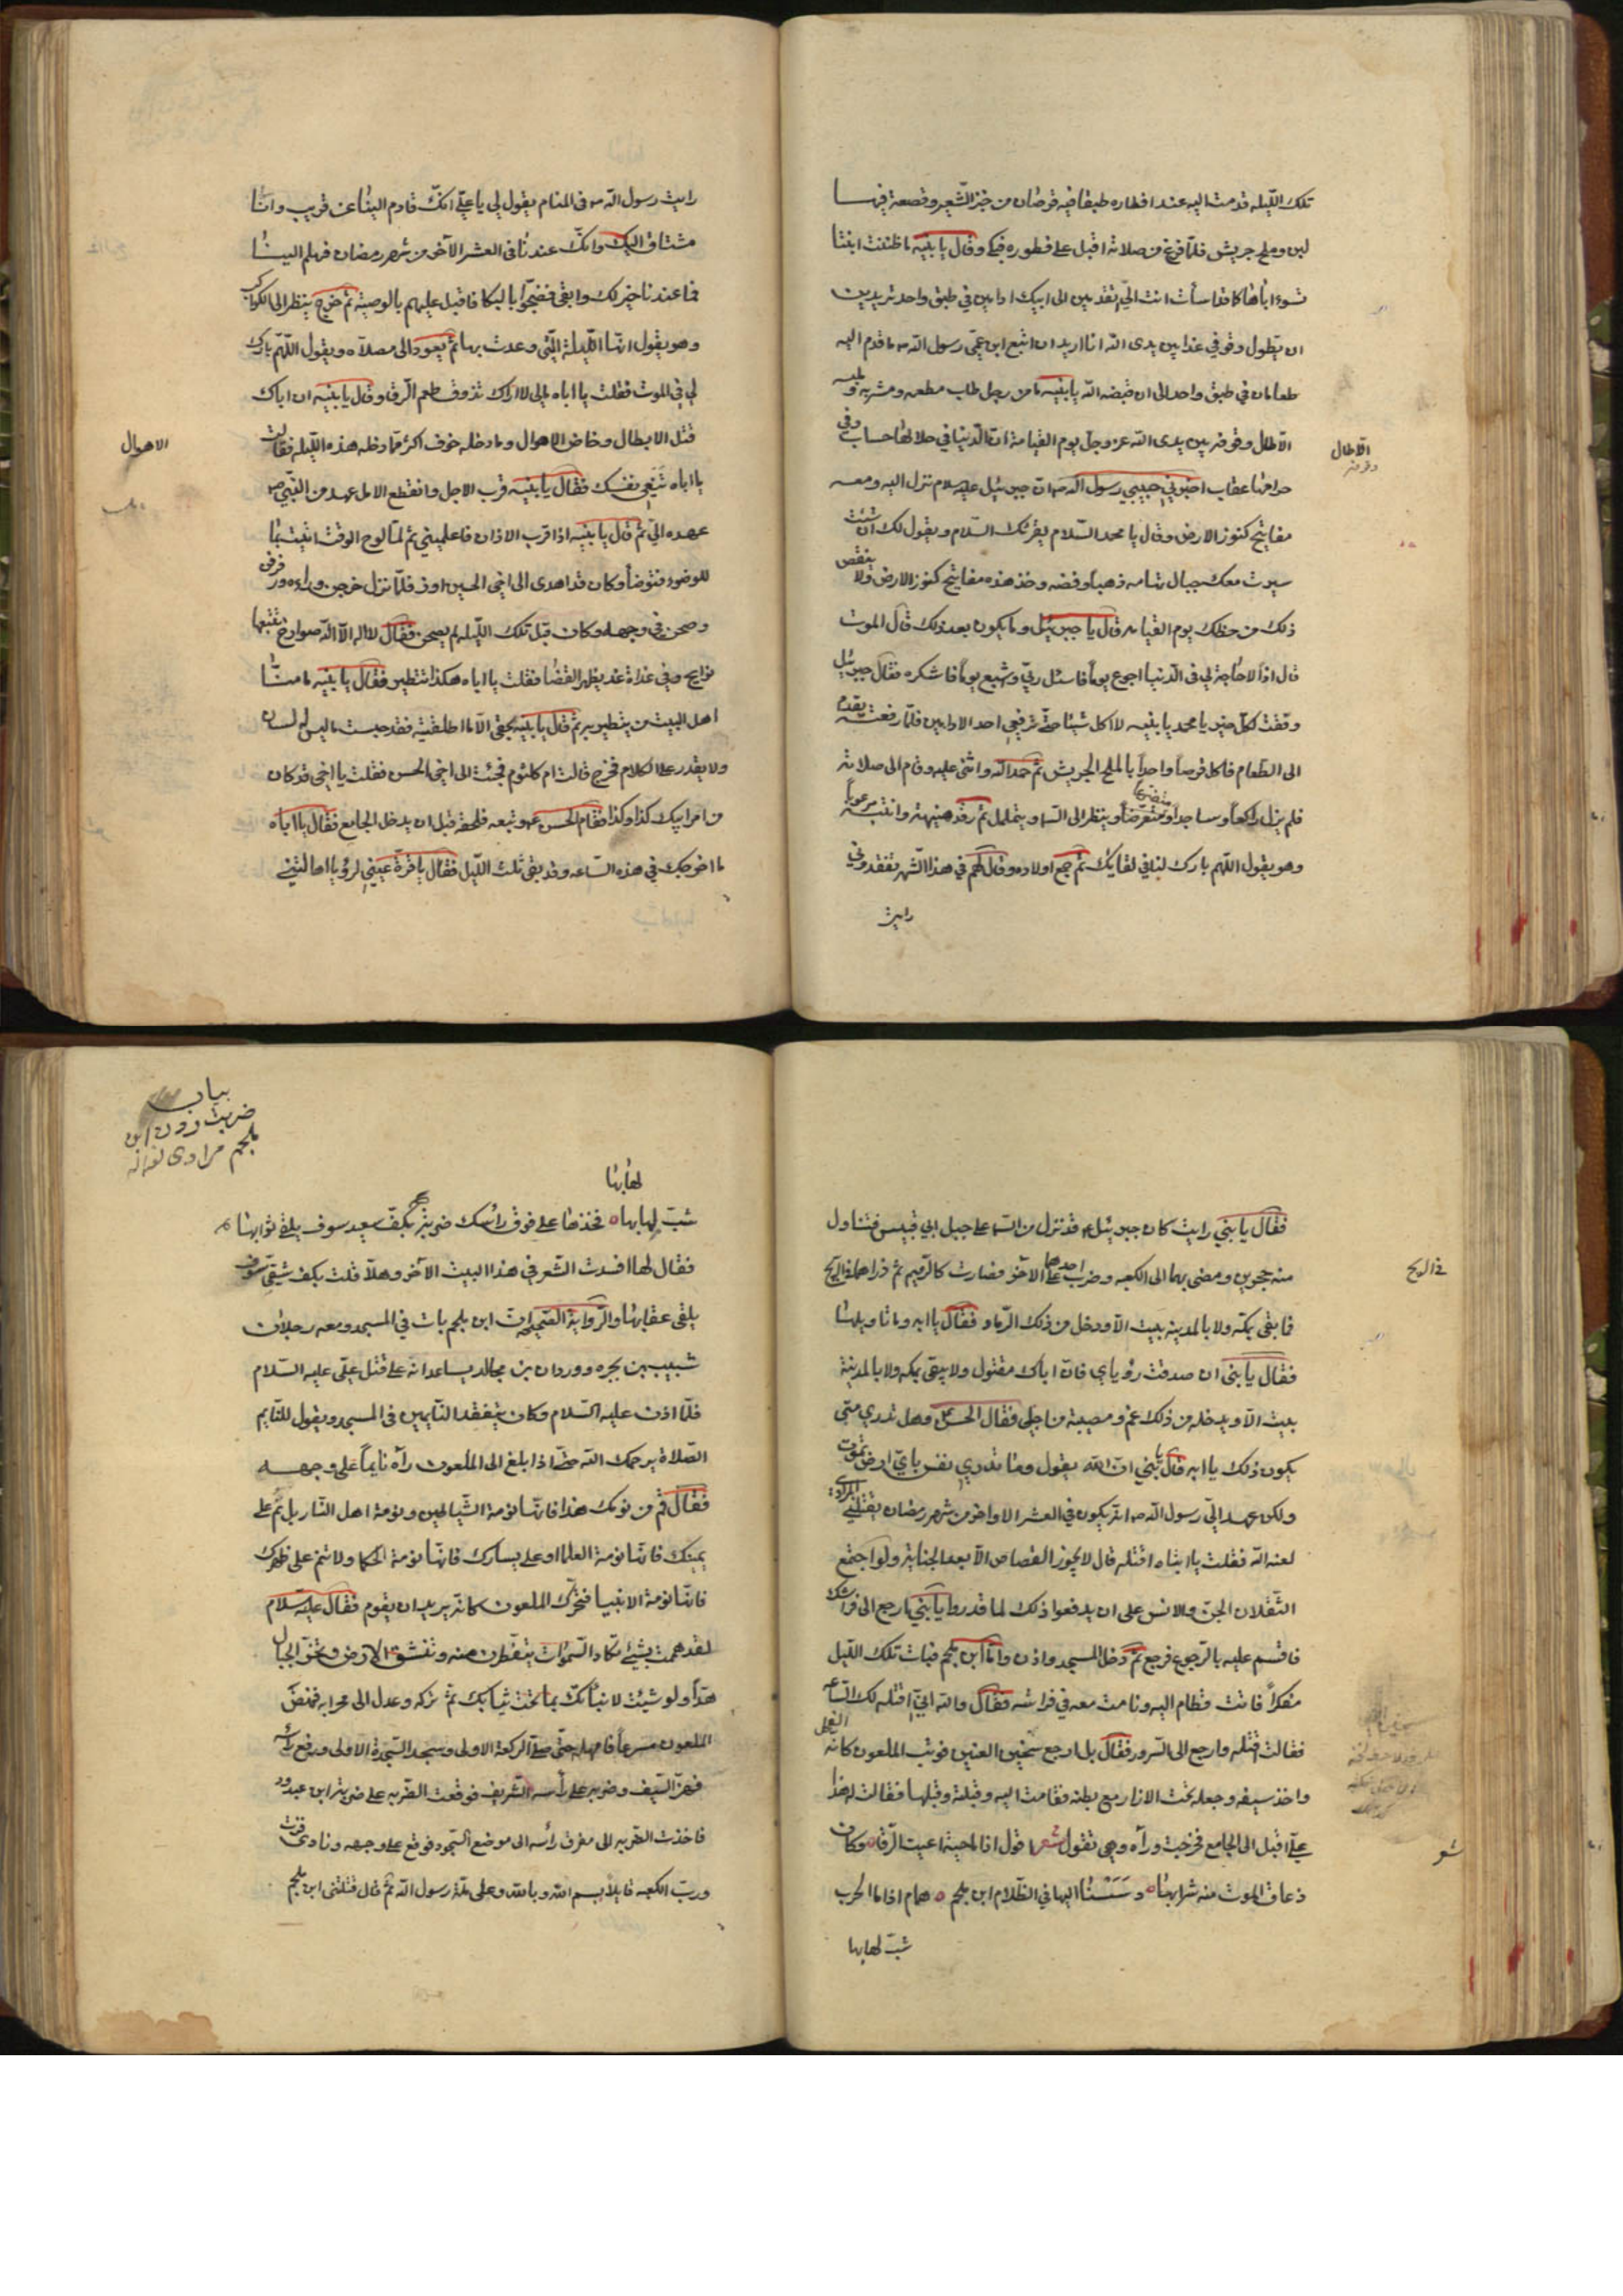 تلك الليله قدمت اليه عند افطاره طبقا فيه قرصان من خبز الشعير وقصعة فيها
لبن وملح جريش فلما فرغ من صلاته اقبل على فطوره فبكى وقال يا بنيه ما ظننت ابنتا
تسوء اباها كما قد اسأت انت الي تقدمين الى ابيك ادامين في طبق واحد تريدين
ان يطول وقوفي غدا بين يدي الله انا اريد ان اتبع ابن عمي رسول الله ص ما قدم اليه
طعامان في طبق واحد الى ان قبضه الله يا بنيه ما من رجل طاب مطعمه ومشربه وملبسه
الا طال وقوفه بين يدي الله عز وجل يوم القيامة ان الدنيا في حلالها حساب وفي
الا طال
وقوفه
حرامها عقاب اخبرني حبيبي رسول الله ص ان جبرئيل عليه سلام نزل اليه ومعه
مفاتيح كنوز الارض وقال يا محمد السلام يقرئك السلام ويقول لك ان شئت
سيرت معك جبال تهامه ذهبا وفضه وخذ هذه مفاتيح كنوز الارض ولا ينقص
ذلك من حظك يوم القيامه قال يا جبرئيل وما يكون بعد ذلك قال الموت
قال اذا لا حاجة لي في الدنيا اجوع يوما فاسئل ربي وشبع يوما فاشكره فقال جبرئيل
وفقت لكل خير يا محمد يا بنيه لا اكل شيئا حتى ترفعي احد الادامين فلما رفعته يقدم
الى الطعام فاكل قرصا واحدا بالملح الجريش ثم حمد الله واثنى عليه وقام الى صلاته
فلم يزل راكعا وساجدا ومتضرعا وينظر الى السما ويتململ ثم رقد هنيهة وانتبه مرعوبا
وهو يقول اللهم بارك لنا في لقايك ثم جمع اولاده وقال لهم في هذا الشهر تفقدوني
رايت
رايت رسول الله ص في المنام يقول لي يا علي انك قادم الينا عن قريب وانا
مشتاق اليك وانك عندنا في العشر الآخر من شهر رمضان فهلم الينا
فما عندنا خير لك وابقى فضجوا بالبكا فاقبل عليهم بالوصية ثم خرج ينظر الى الكواكب
وهو يقول انها الليلة التي وعدت بها ثم يعود الى مصلاه ويقول اللهم بارك
لي في الموت فقلت يا اباه مالي لا اراك تذوق طعم الرقاد قال يا بنيه ان اباك
قتل الابطال وخاض الاهوال وما دخله خوف اكثر مما دخله هذه الليله فقالت
الاهوال
يا اباه تنعى نفسك فقال يا بنيه قرب الاجل وانقطع الامل عهد من النبي ص
عهده الي ثم قال يا بنيه اذا قرب الاذان فاعلميني ثم لما لوح الوقت اتيت بما
للوضوء فتوضأ وكان قد اهدى الى اخي الحسين اوز فلما نزل خرجن وراءه ورفرفن
وصحن في وجهه وكان قبل تلك الليله لم يصحن فقال لا اله الا الله صوارخ تتبعها
نوايح وفي غداة غد يظهر القضا فقلت يا اباه هكذا تتطير فقال يا بنيه ما منا
اهل البيت من يتطير به ثم قال يا بنيه بحقي الا ما اطلقتيه فقد حبست ما ليس له لسان
ولا يقدر على الكلام فخرج قالت ام كلثوم فجئت الى اخي الحسن فقلت يا اخي قد كان
من امر ابيك كذا وكذا فقام الحسن ع وتبعه فلحقه قبل ان يدخل الجامع فقال يا اباه
ما اخرجك في هذه الساعه وقد بقي ثلث الليل فقال يا قرة عيني لرؤيا اهالتني
فقال يا بني رايت كان جبرئيل ع قد نزل من السما على جبل ابي قبيس فتناول
منه حجرين ومضى بهما الى الكعبه وضرب احدهما على الآخر فصارت كالرميم ثم ذراهما في الريح
في الريح
فما بقي بمكه ولا بالمدينه بيت الا ودخل من ذلك الرماد فقال يا ابه وما تاويلها
فقال يا بني ان صدقت رؤياي فان اباك مقتول ولا يبقى بمكه ولا بالمدينة
بيت الا ويدخله من ذلك غم ومصيبة من اجلي فقال الحسن وهل تدري متى
يكون ذلك يا ابه قال يا بني ان الله يقول وما تدري نفس باي ارض تموت
ولكن عهد الي رسول الله ص انه يكون في العشر الاواخر من شهر رمضان يقتلني المرادي
لعنه الله فقلت يا ابتاه اقتله قال لا يجوز القصاص الا بعد الجنايه ولو اجتمع
الثقلان الجن والانس على ان يدفعوا ذلك لما قدروا يا بني ارجع الى فراشك
فاقسم عليه بالرجوع فرجع ثم دخل المسجد واذن واما ابن ملجم فبات تلك الليل
مفكرا فاتت قطام اليه ونامت معه في فراشه فقال والله اني اقتله لك الساعه
فقالت اقتله وارجع الى السرور فقال بل ارجع سخين العين فوثب الملعون كانه الفحل
واخذ سيفه وجعله تحت الازار مع بطنه فقامت اليه وقبلته وقبلها فقالت له هذا
علي اقبل الى الجامع فخرجت وراه وهي تقول شعر اقول اذا ما حية اعيت الرقا ه وكان
شعر
ذعاف الموت منه شرابها ه دسسنا اليها في الظلام ابن ملجم ه همام اذا ما الحرب
شب لهابها
بيان
ضربت زدن ابن
ملجم مرادي
لهابها
شب لهابها ه فخذها علي فوق رأسك ضربة بكف سعيد سوف يلقى ثوابها
فقال لها افسدت الشعر في هذا البيت الآخر وهلا قلت بكف شقي سوف
يلقى عقابها والرواية الصحيحه ان ابن ملجم بات في المسجد ومعه رجلان
شبيب بن بجره ووردان بن مجالد يساعدانه على قتل علي عليه السلام
فلما اذن عليه السلام وكان يتفقد النايمين في المسجد ويقول للنايم
الصلاة يرحمك الله حتى اذا بلغ الى الملعون رآه نايما على وجهه
فقال قم من نومك هذا فانها نومة الشياطين ونومة اهل النار بل نم على
يمينك فانها نومة العلما او على يسارك فانها نومة الحكما ولا تنم على ظهرك
فانها نومة الانبيا فتحرك الملعون كانه يريد ان يقوم فقال عليه سلام
لقد هممت بشيئ تكاد السموات يتفطرن منه وتنشق الارض وتخر الجبال
هدا ولو شئت لانبأتك بما تحت ثيابك ثم تركه وعدل الى محرابه فنهض
الملعون مسرعا فامهله حتى صلى الركعة الاولى وسجد السجدة الاولى ورفع رأسه
فهز السيف وضربه على رأسه الشريف فوقعت الضربه على ضربة ابن عبدود
فاخذت الضربه الى مفرق رأسه الى موضع السجود فوقع على وجهه ونادى فزت
ورب الكعبه قايلا بسم الله وبالله وعلى ملة رسول الله ثم قال قتلني ابن ملجم